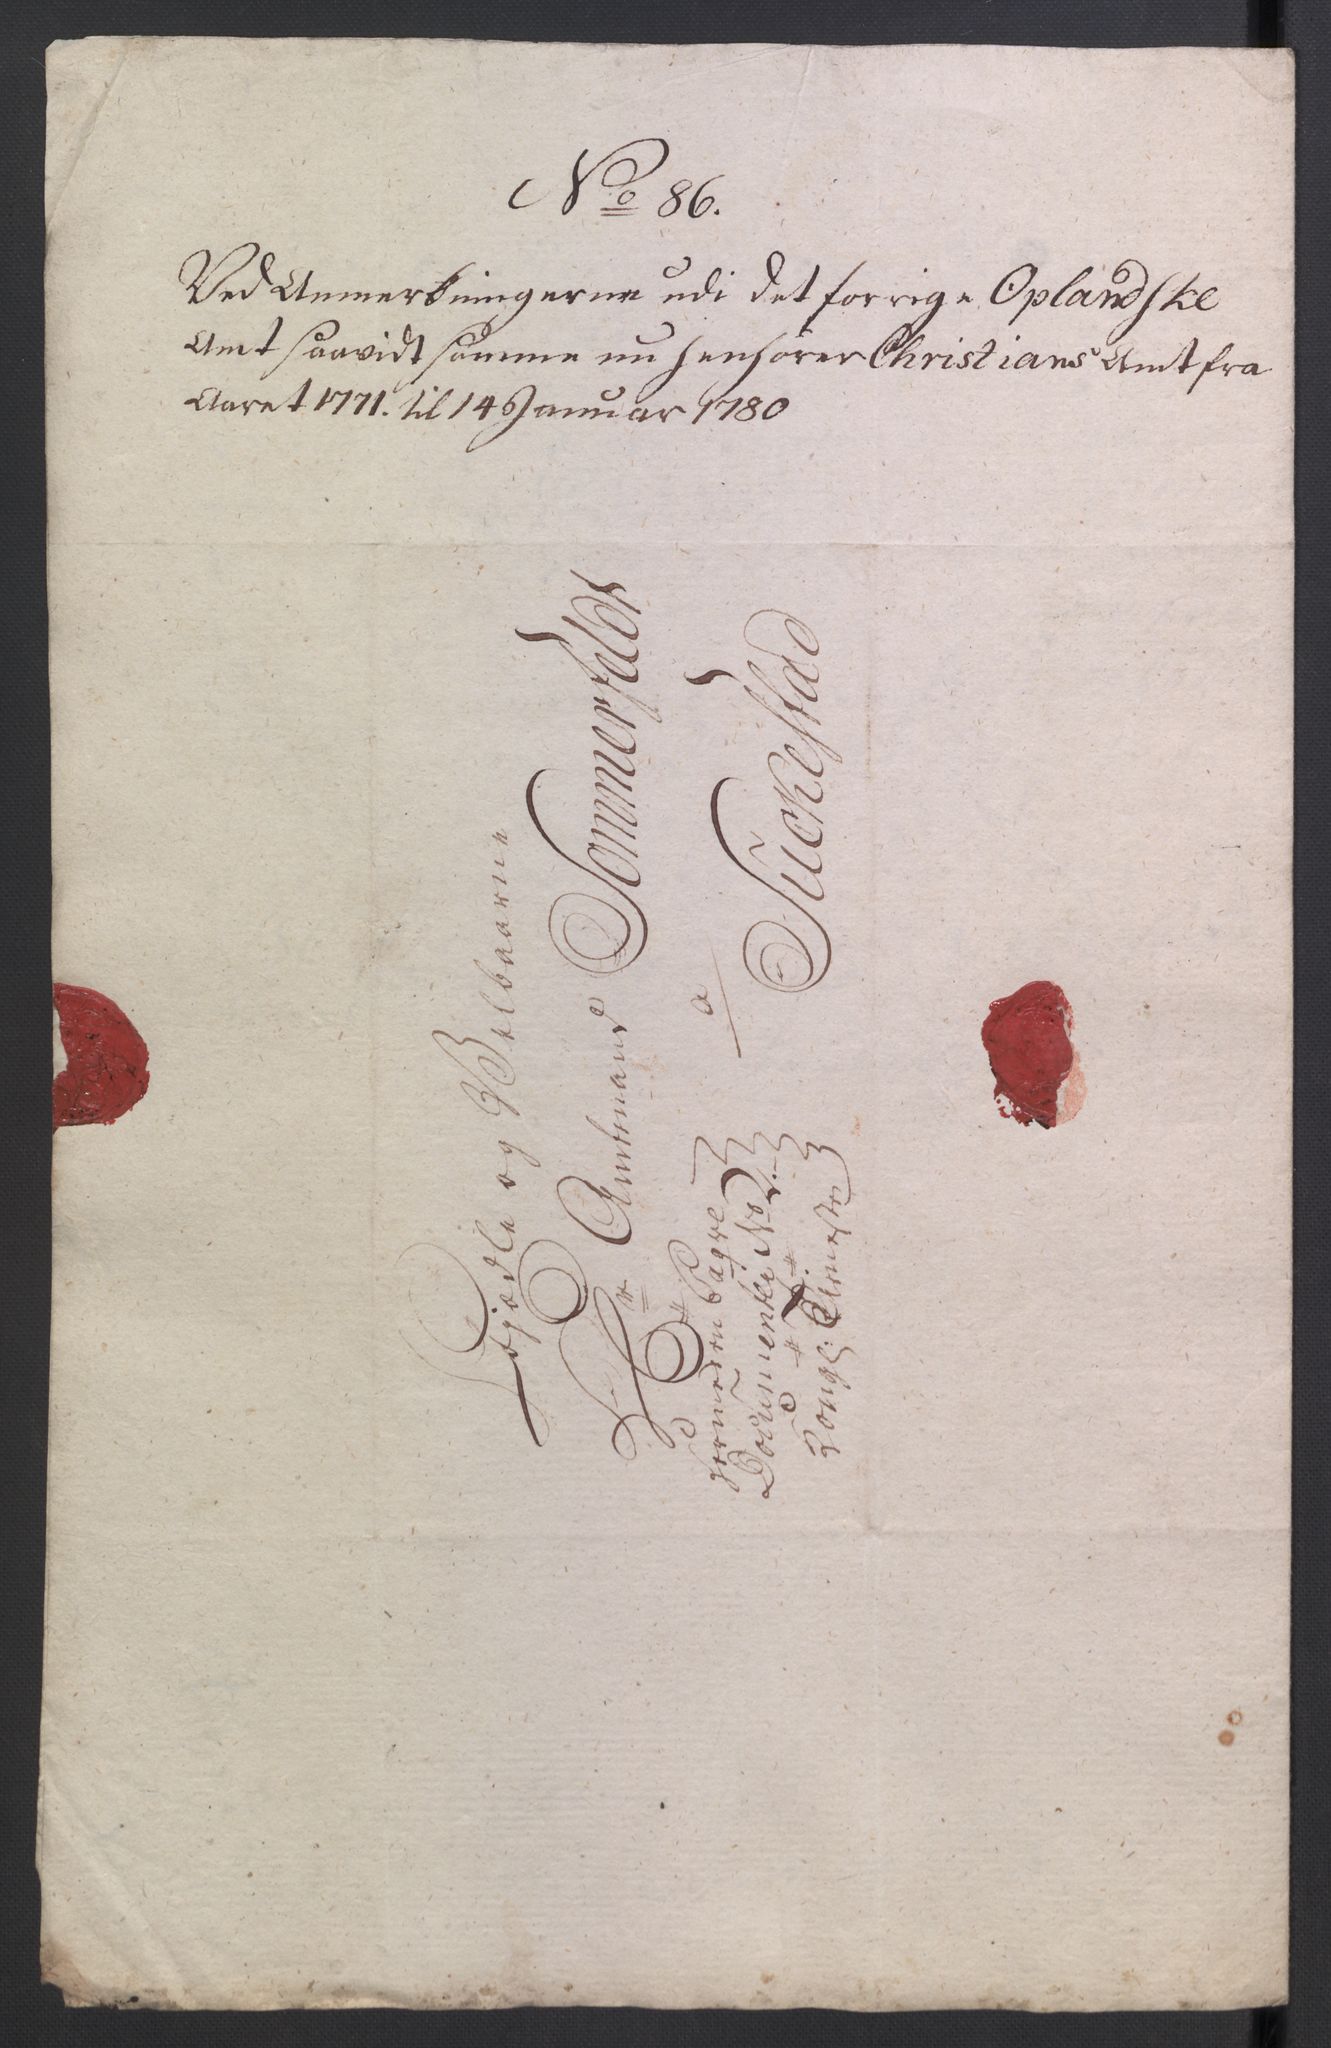 No 86.
Ved Anmerkningerne udi det forrige Oplandske
Amt saavidt samme nu henhører Christians Amt fra
Aaret 1771. til 14 Januar 1780
Høiædle og Velbaarne
Hr Amtmand Sommerfeldt
a
Tückestad
herudinden
Documenter No
Kongl: